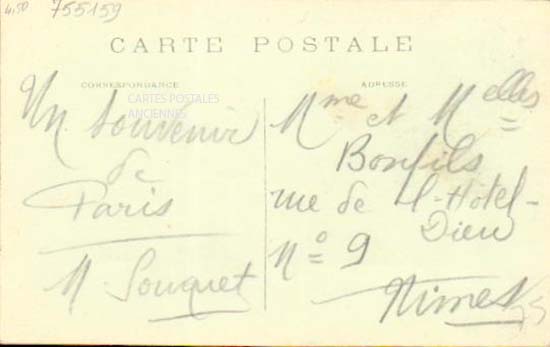 4,50 755159
CARTE POSTALE
CORRESPONDANCE
CARTES POSTALES
ANCIENNES
Un Souvenir
de
Paris
M. Souquet
ADRESSE
Mme et Melles
Bonfils
rue de l'Hôtel-
Dieu
No 9
Nimes